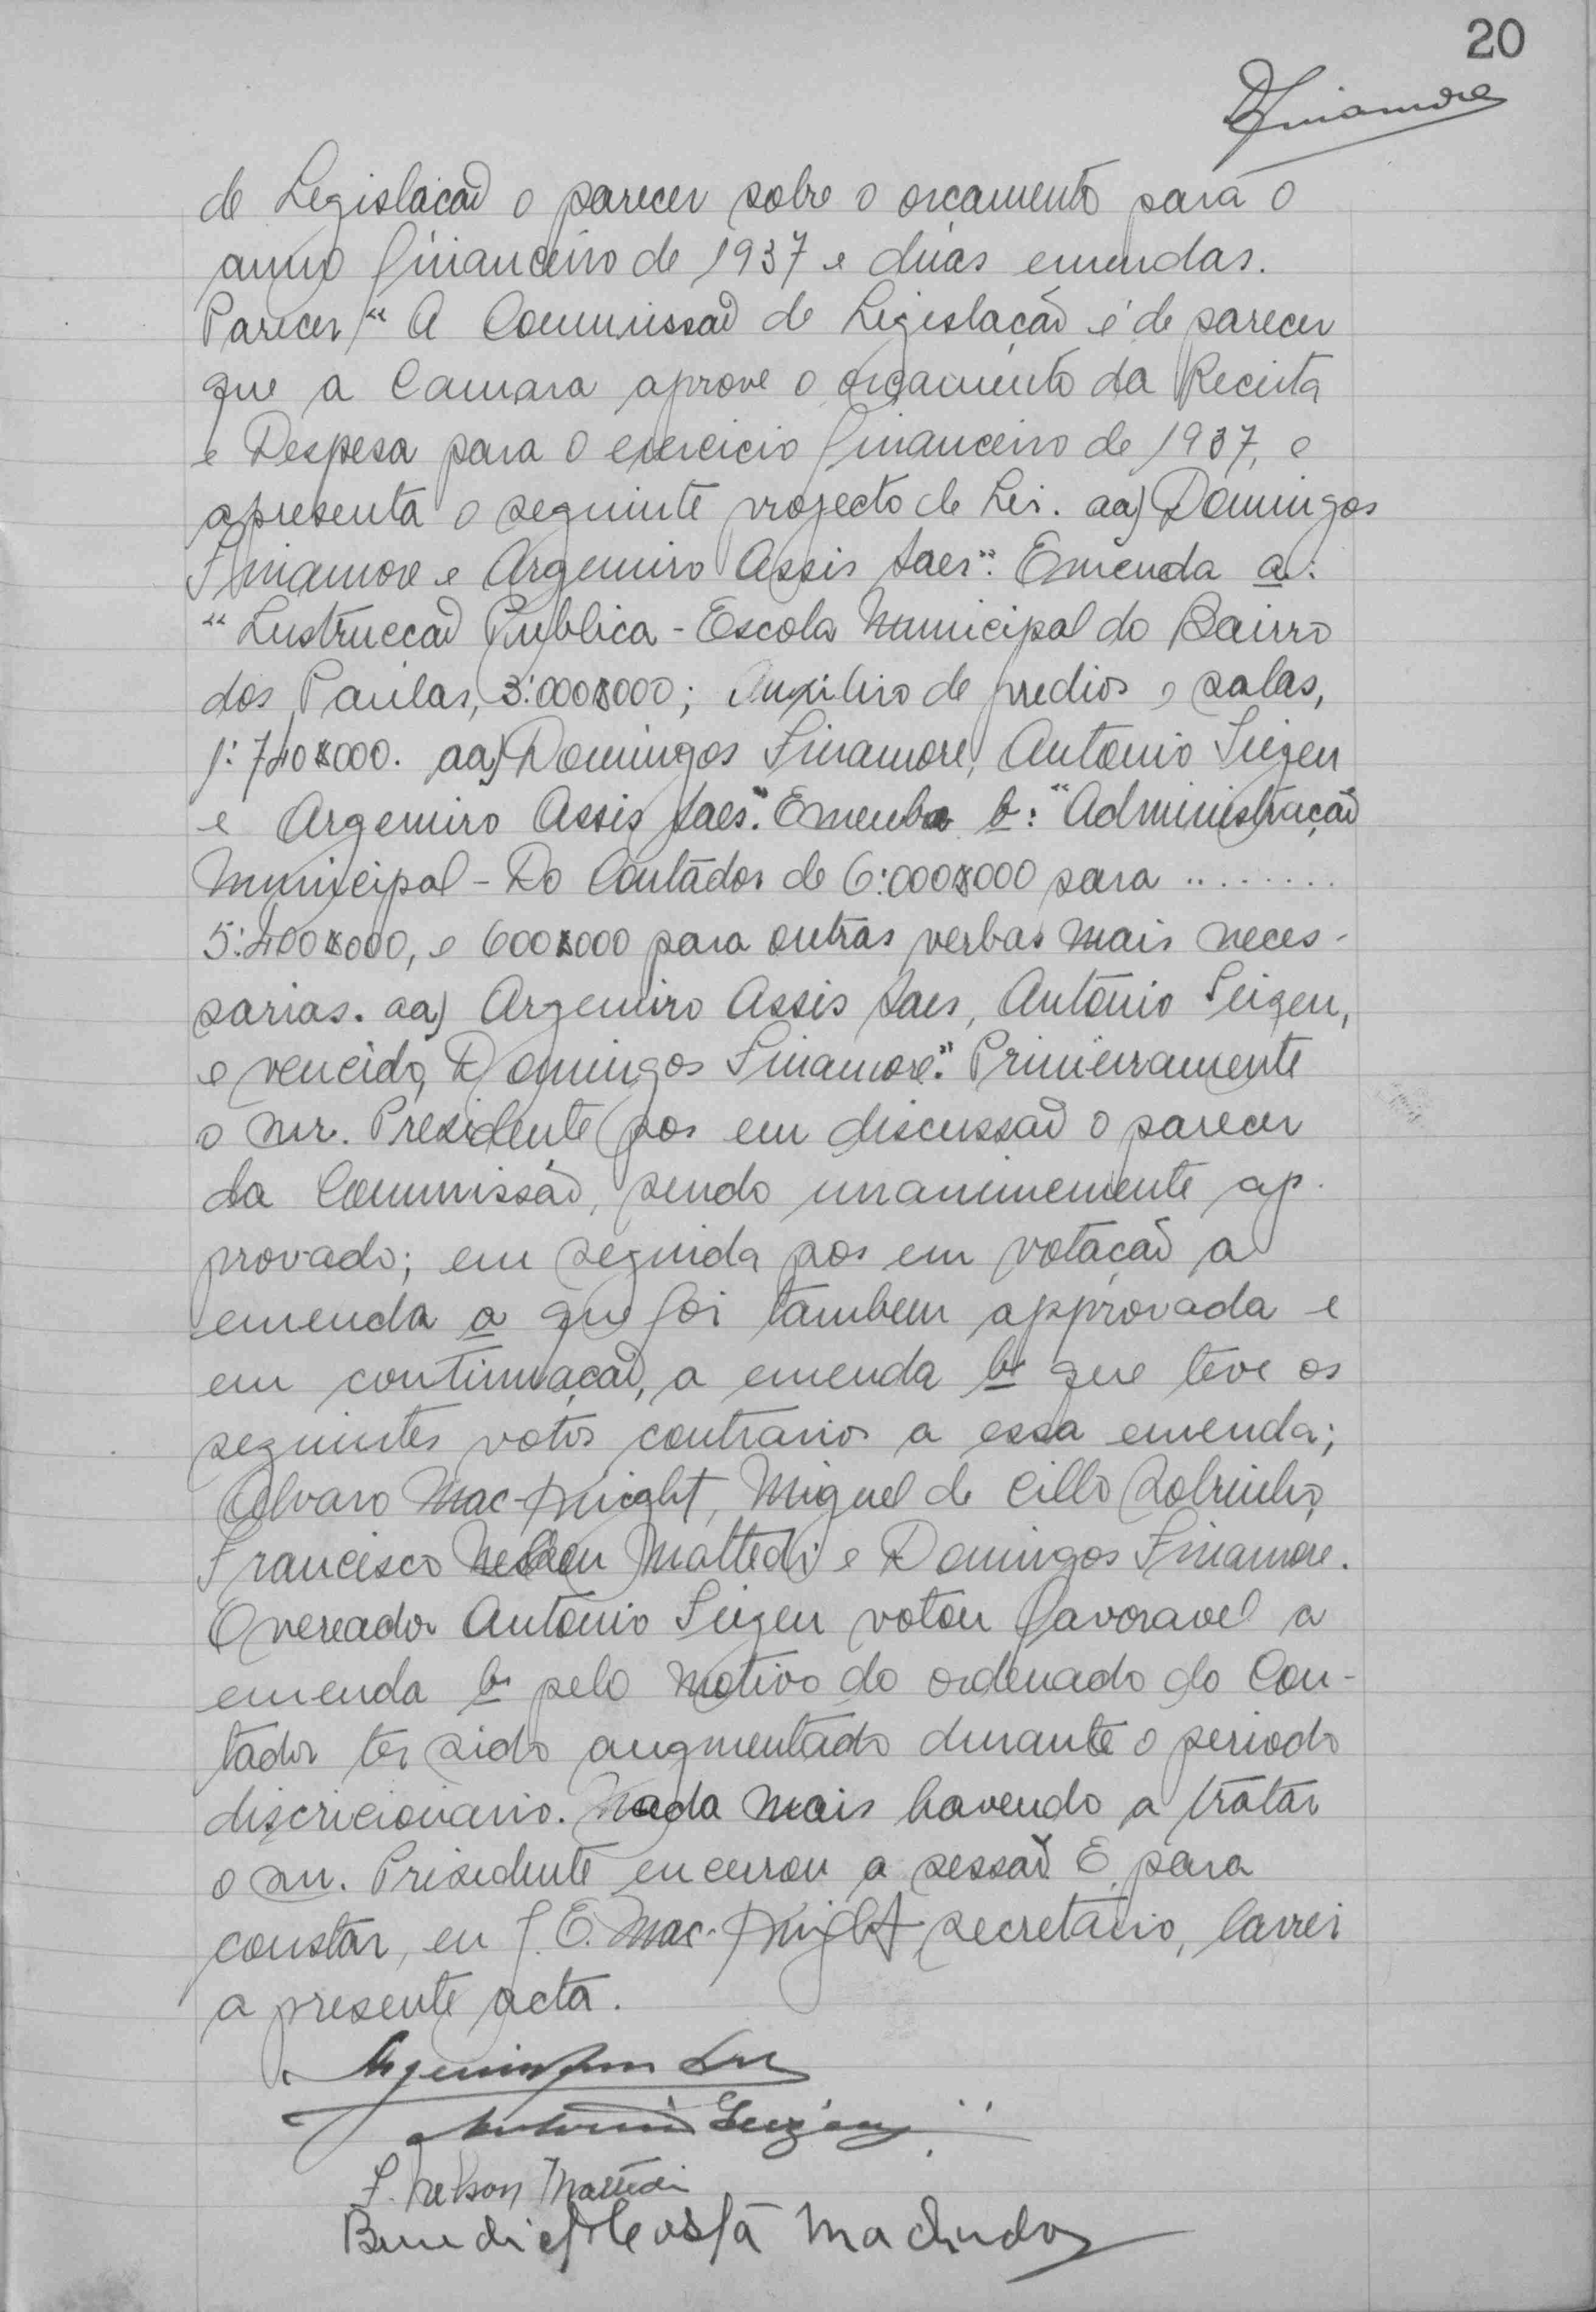 20
DFinamore
de Legislação o parecer sobre o orçamento para o
anno financeiro de 1937 e duas emendas.
Parecer, "A Commissão de Legislação é de parecer
que a Camara aprove o orçamento da Receita
e Despesa para o exercicio financeiro de 1937, e
apresenta o seguinte projecto de Lei. aa) Domingos
Finamore e Argemiro Assis Saes". Emenda a:
"Instrucção Publica - Escola Municipal do Bairro
dos Paulas, 3:000$000; Auxilio de predios e salas,
1:740$000. aa) Domingos Finamore, Antonio Luizen
e Argemiro Assis Saes". Emenda b: "Administração
Municipal - Do Contador de 6:000$000 para .........
5:400$000, e 600$000 para outras verbas mais neces-
sarias. aa) Argemiro Assis Saes, Antonio Luizen,
e vencido, Domingos Finamore". Primeiramente
o snr. Presidente pos em discussão o parecer
da Commissão, sendo unanimemente ap-
provado; em seguida pos em votação a
emenda a que foi tambem approvada e
em continuação, a emenda b que teve os
seguintes votos contrarios a essa emenda;
Alvaro Mac-Knight, Miguel de Cillo Sobrinho,
Francisco Nelson Mattedi e Domingos Finamore.
O vereador Antonio Luizen votou favoravel a
emenda b pelo motivo do ordenado do Con-
tador ter sido augmentado durante o periodo
discricionario. Nada mais havendo a tratar
o snr. Presidente encerrou a sessão. E, para
constar, eu J. E. Mac-Knight secretario, lavrei
a presente acta.
Antonio Luizen
F. Nelson Mattedi
Benedicto Costa Machado